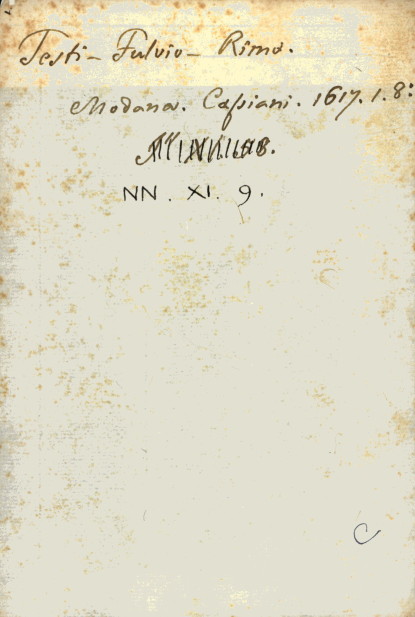 Testi - Fulvio - Rime.
Modana. Caſsiani. 1617. 1. 8:
NN. XI. 9.
C